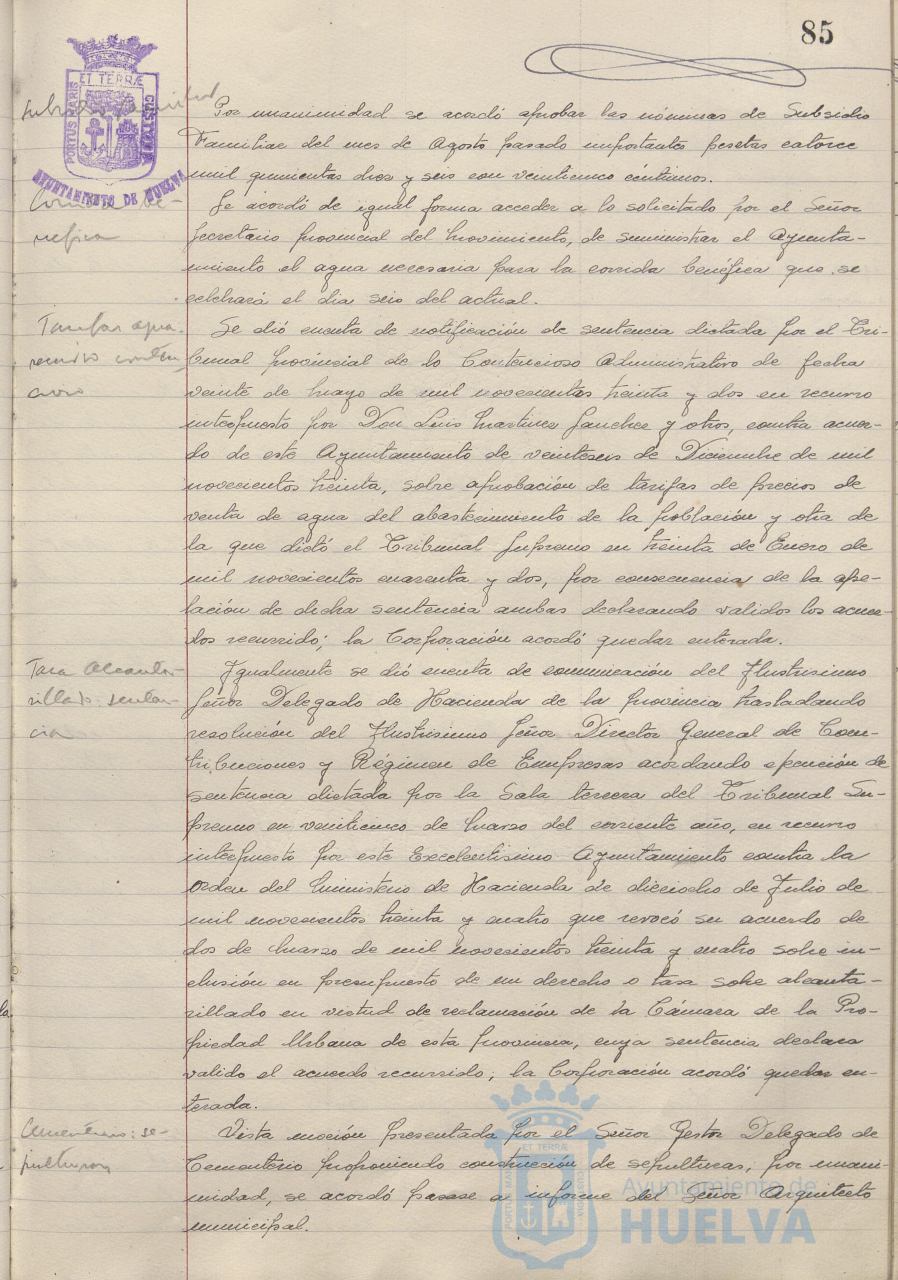 85
ET TERRÆ
PORTUS MARIS
CUSTODIA
AYUNTAMIENTO DE HUELVA
Subsidio
Por unanimidad se acordó aprobar las nóminas de Subsidio
Familiar del mes de Agosto pasado importantes pesetas catorce
mil quinientas diez y seis con veinticinco céntimos.
Corrida be-
néfica
Se acordó de igual forma acceder a lo solicitado por el Señor
Secretario Provincial del Movimiento, de suministrar el Ayunta-
miento el agua necesaria para la corrida benéfica que se
celebrará el dia seis del actual.
Tarifas agua.
recurso conten
cioso
Se dió cuenta de notificación de sentencia dictada por el Tri-
bunal Provincial de lo Contencioso Administrativo de fecha
veinte de Mayo de mil novecientos treinta y dos en recurso
interpuesto por Don Luis Martinez Sanchez y otros, contra acuer-
do de este Ayuntamiento de veintiseis de Diciembre de mil
novecientos treinta, sobre aprobación de tarifas de precios de
venta de agua del abastecimiento de la población y otra de
la que dictó el Tribunal Supremo en treinta de Enero de
mil novecientos cuarenta y dos, por consecuencia de la ape-
lación de dicha sentencia ambas declarando validos los acuer-
dos recurrido; la Corporación acordó quedar enterada.
Tasa Alcanta-
rillado: senten-
cia
Igualmente se dió cuenta de comunicación del Ilustrisimo
Señor Delegado de Hacienda de la provincia trasladando
resolución del Ilustrisimo Señor Director General de Con-
tribuciones y Régimen de Empresas acordando ejecución de
sentencia dictada por la Sala tercera del Tribunal Su-
premo en veinticinco de Marzo del corriente año, en recurso
interpuesto por este Excelentisimo Ayuntamiento contra la
Orden del Ministerio de Hacienda de dieciocho de Julio de
mil novecientos treinta y cuatro que revocó su acuerdo de
dos de Marzo de mil novecientos treinta y cuatro sobre in-
clusión en presupuesto de un derecho o tasa sobre alcanta-
rillado en virtud de reclamación de la Cámara de la Pro-
piedad Urbana de esta Provincia, cuya sentencia declara
valido el acuerdo recurrido; la Corporación acordó quedar en-
terada.
Cementerio: se-
pulturas
Vista moción presentada por el Señor Gestor Delegado de
Cementerio proponiendo construcción de sepulturas; por unani-
midad, se acordó pasase a informe del Señor Arquitecto
municipal.
ET TERRÆ
Ayuntamiento de
HUELVA